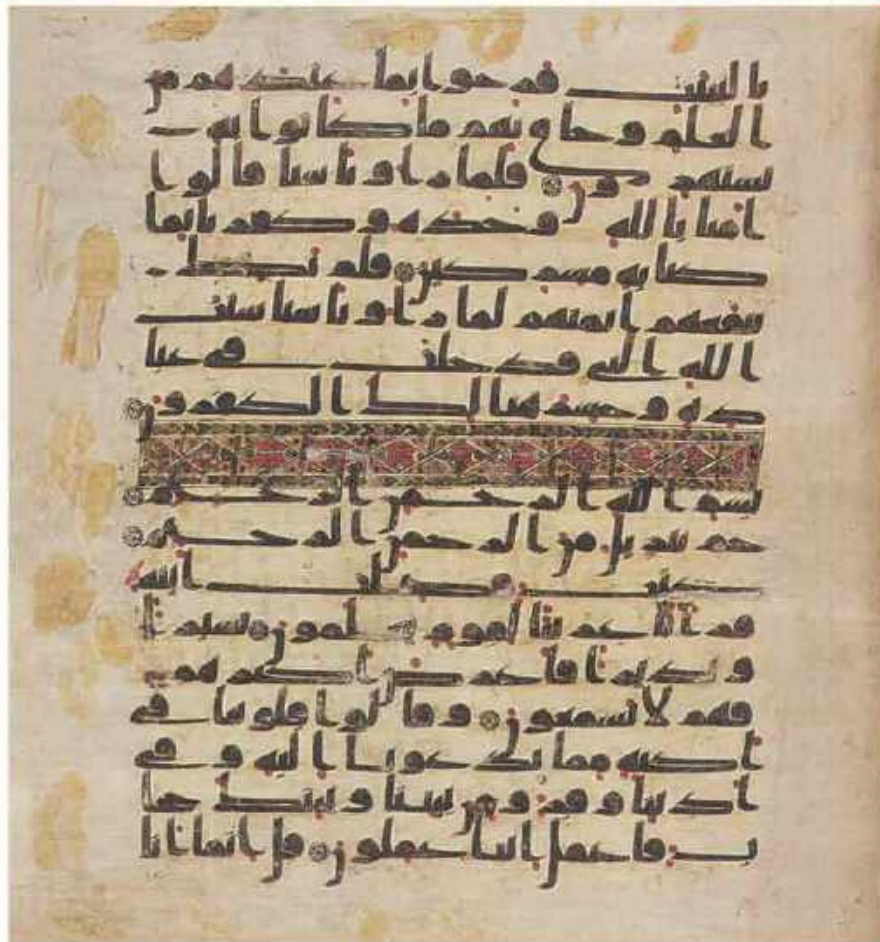 بالبينت فرحوا بما عندهم من
العلم وحاق بهم ما كانوا به
يستهزون فلما راوا باسنا قالوا
امنا بالله وحده وكفرنا بما
كنا به مشركين فلم يك
ينفعهم ايمنهم لما راوا باسنا سنت
الله التي قد خلت في عبا
ده وخسر هنالك الكفرون
بسم الله الرحمن الرحيم
حم تنزيل من الرحمن الرحيم
كتب فصلت ايته
قرانا عربيا لقوم يعلمون بشيرا
ونذيرا فاعرض اكثرهم
فهم لا يسمعون وقالوا قلوبنا في
اكنه مما تدعونا اليه وفي
اذاننا وقر ومن بيننا وبينك حجا
ب فاعمل اننا عملون قل انما انا